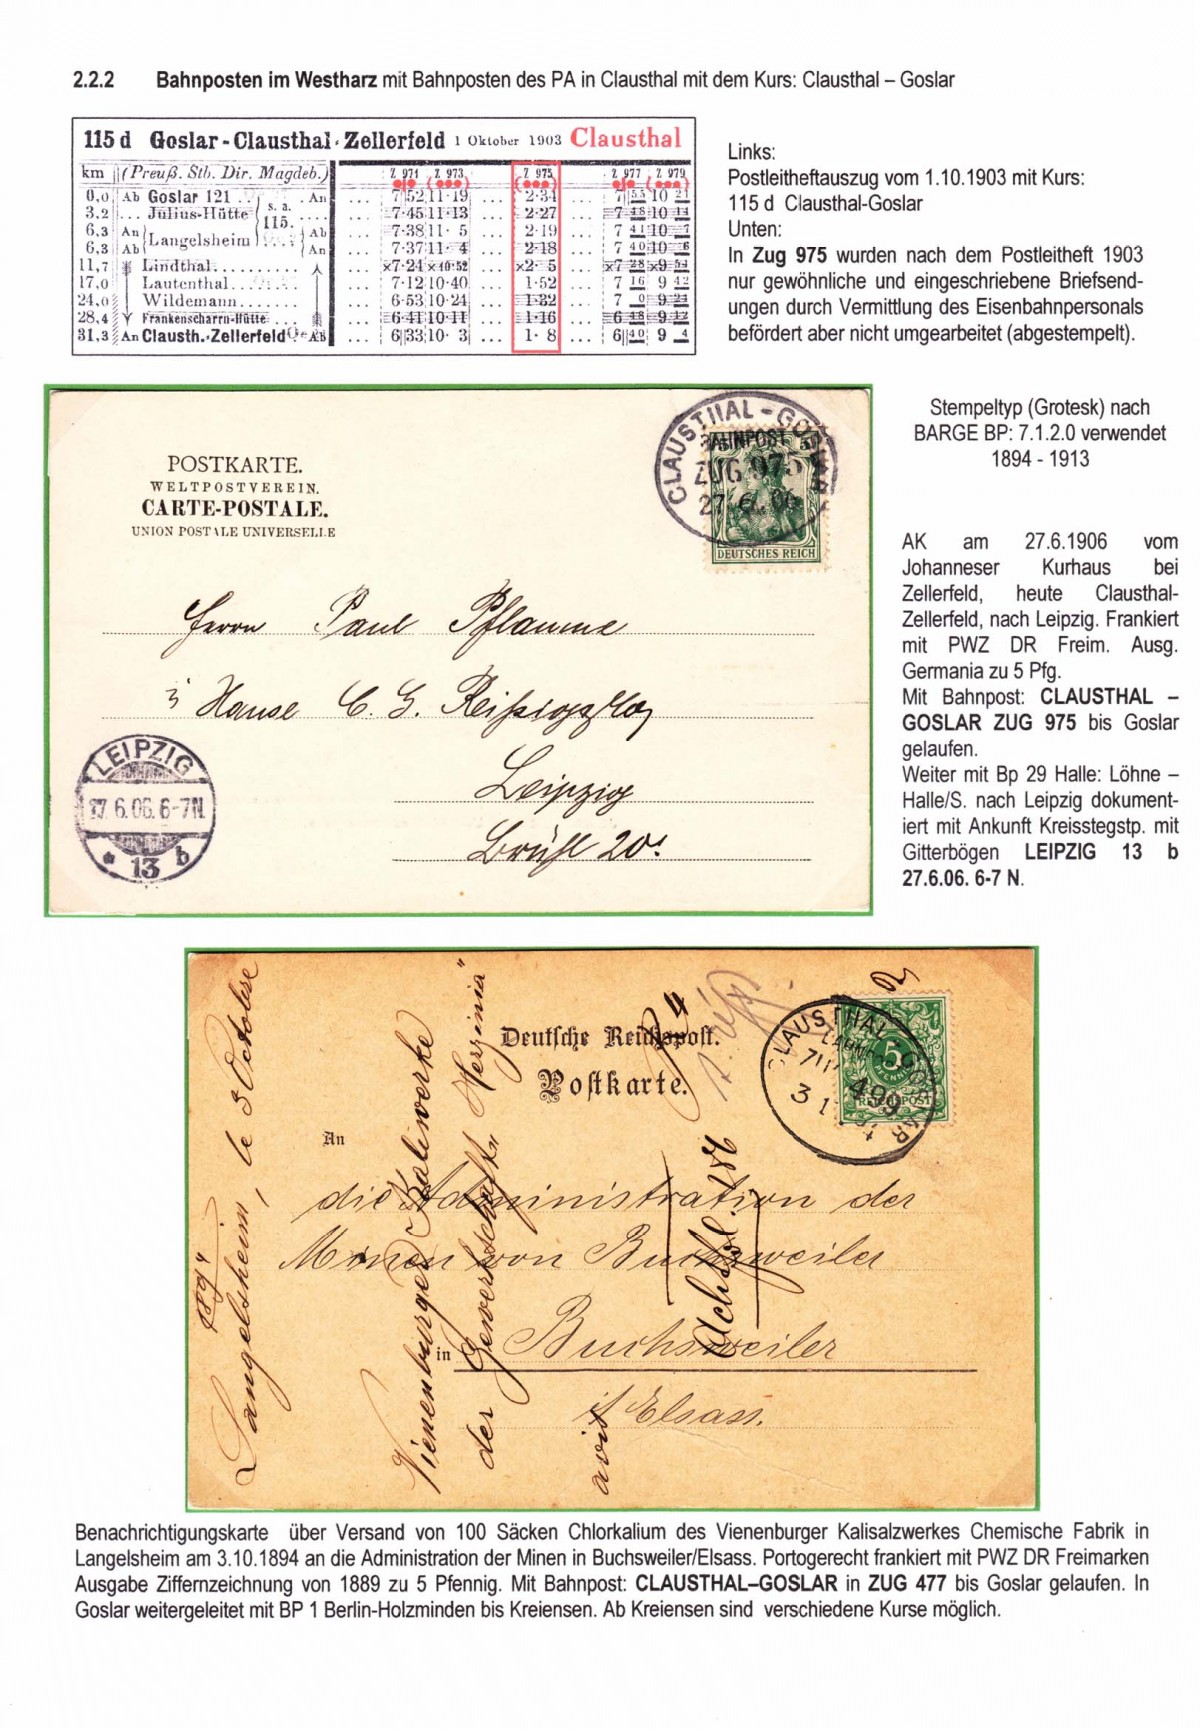 2.2.2 Bahnposten im Westharz mit Bahnposten des PA in Clausthal mit dem Kurs: Clausthal – Goslar
115 d Goslar - Clausthal - Zellerfeld 1 Oktober 1903 Clausthal
km (Preuß. Stb. Dir. Magdeb.) Z 971 Z 973 Z 975 Z 977 Z 979
0,0 Ab Goslar 121 An ... 7 52 11·19 ... 2·34 ... 7 55 10 21
3.2 ... Julius-Hütte s. a. .... ... 7·45 11·13 ... 2·27 ... 7 48 10 14
6.3 An Langelsheim 115. Ab ... 7·38 11· 5 ... 2·19 7 41 10 7
6,3 Ab An ... 7·37 11· 4 ... 2·18 7 40 10 6
11,7 Lindthal ... ×7·24 ×10·52 ... ×2· 5 ... ×7 28 ×9 54
17,0 Lautenthal ... 7·12 10·40 ... 1·52 7 16 9 42
24,0 Wildemann ... 6·53 10·24 ... 1·32 7 0 9 24
28,4 Frankenscharrn-Hütte ... 6·41 10·11 ... 1·16 ... 6 48 9 12
31,3 An Clausth.-Zellerfeld Ab ... 6 33 10· 3 ... 1· 8 ... 6 40 9 4
Links:
Postleitheftauszug vom 1.10.1903 mit Kurs:
115 d Clausthal-Goslar
Unten:
In Zug 975 wurden nach dem Postleitheft 1903
nur gewöhnliche und eingeschriebene Briefsend-
ungen durch Vermittlung des Eisenbahnpersonals
befördert aber nicht umgearbeitet (abgestempelt).
POSTKARTE.
WELTPOSTVEREIN.
CARTE-POSTALE.
UNION POSTALE UNIVERSELLE
CLAUSTHAL - GOSLAR
BAHNPOST
ZUG 975
27. 6. 06
DEUTSCHES REICH
Herrn Paul Pflaume
i Hause C. G.
Leipzig
Brühl 20.
LEIPZIG
27. 6. 06. 6-7 N.
* 13 b
Stempeltyp (Grotesk) nach
BARGE BP: 7.1.2.0 verwendet
1894 - 1913
AK am 27.6.1906 vom
Johanneser Kurhaus bei
Zellerfeld, heute Clausthal-
Zellerfeld, nach Leipzig. Frankiert
mit PWZ DR Freim. Ausg.
Germania zu 5 Pfg.
Mit Bahnpost: CLAUSTHAL –
GOSLAR ZUG 975 bis Goslar
gelaufen.
Weiter mit Bp 29 Halle: Löhne –
Halle/S. nach Leipzig dokument-
iert mit Ankunft Kreisstegstp. mit
Gitterbögen LEIPZIG 13 b
27.6.06. 6-7 N.
Deutsche Reichspost.
Postkarte.
CLAUSTHAL - GOSLAR
5
PFENNIG
REICHSPOST
An
die Administration der
Minen von Buchsweiler
in Buchsweiler
i/Elsass.
Langelsheim, le 3 Octobre
1894
Vienenburger Kaliwerke
der Gewerkschaft „Hercynia“
Benachrichtigungskarte über Versand von 100 Säcken Chlorkalium des Vienenburger Kalisalzwerkes Chemische Fabrik in
Langelsheim am 3.10.1894 an die Administration der Minen in Buchsweiler/Elsass. Portogerecht frankiert mit PWZ DR Freimarken
Ausgabe Ziffernzeichnung von 1889 zu 5 Pfennig. Mit Bahnpost: CLAUSTHAL–GOSLAR in ZUG 477 bis Goslar gelaufen. In
Goslar weitergeleitet mit BP 1 Berlin-Holzminden bis Kreiensen. Ab Kreiensen sind verschiedene Kurse möglich.